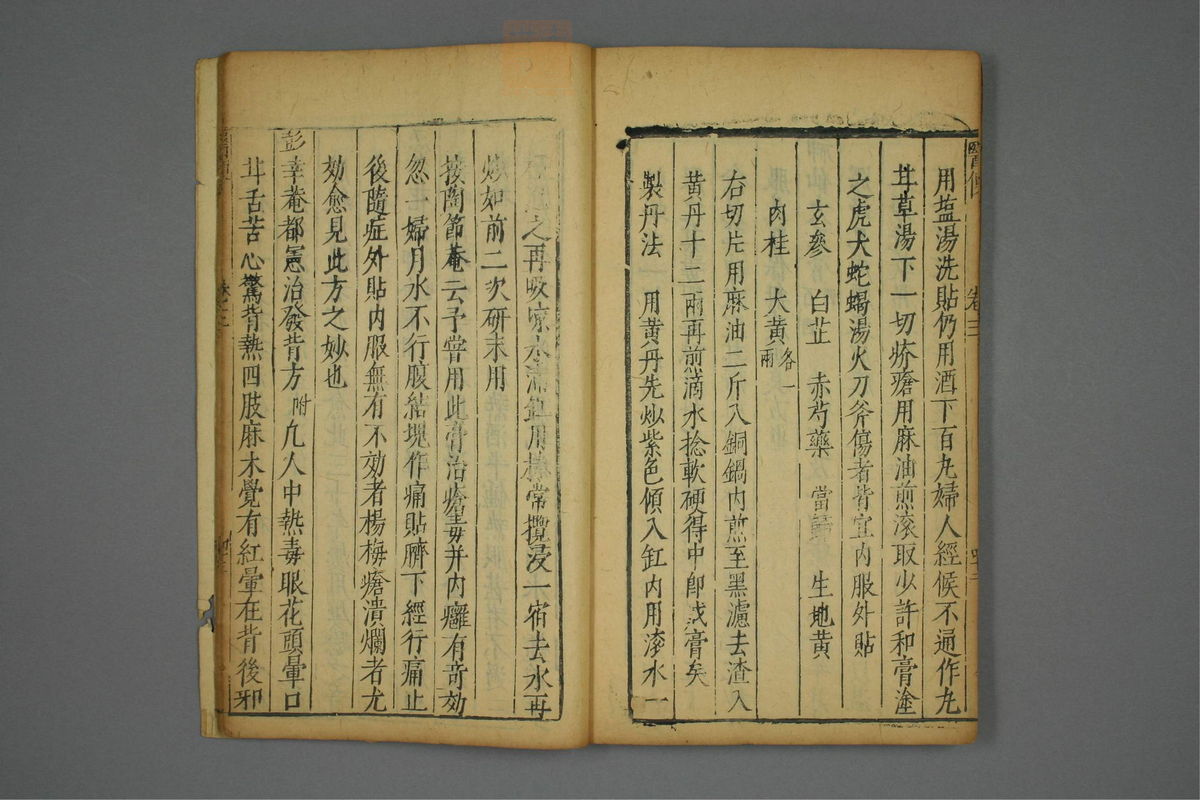 用塩湯洗貼仍用酒下百丸婦人經候不通作丸
甘草湯下一切疥瘡用麻油煎滚取少許和膏塗
之虎犬蛇蝎湯火刀斧傷者皆宜内服外貼
玄參 白芷 赤芍藥 當歸 生地黄
肉桂 大黄各一兩
右切片用麻油二斤入銅鍋内煎至黑濾去渣入
黄丹十二兩再煎滴水捻軟硬得中即成膏矣
製丹法 用黄丹先炒紫色傾入缸内用滚水一
之再吸凉水滿缸用棒常攪浸一宿去水再
炒如前二次研末用
按陶節菴云予嘗用此膏治瘡毒并内癰有竒効
忽一婦月水不行腹結塊作痛貼臍下經行痛止
後隨症外貼内服無有不効者楊梅瘡潰爛者尤
効愈見此方之妙也
彭幸菴都憲治發背方附凢人中熱毒眼花頭暈口
甘舌苦心驚背熱四肢麻木覺有紅暈在背後邪
卷三